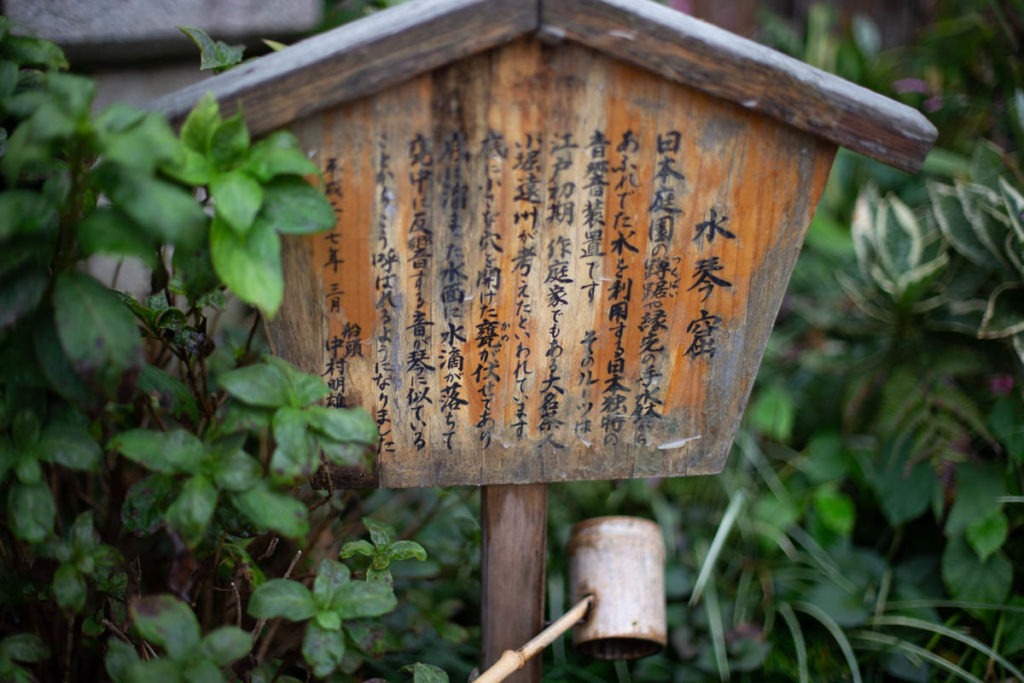 水琴窟
日本庭園の蹲踞や縁先の手水鉢から
つくばい
あふれでた水を利用する日本独特の
音響装置です そのルーツは
江戸初期 作庭家でもある大名茶人
小堀遠州が考えたといわれています
底に小さな穴を開けた甕が伏せてあり
かめ
底に溜まった水面に水滴が落ちて
甕中に反響する音が琴に似ている
ことからそう呼ばれるようになりました
平成二十七年三月
船頭 中村明雄